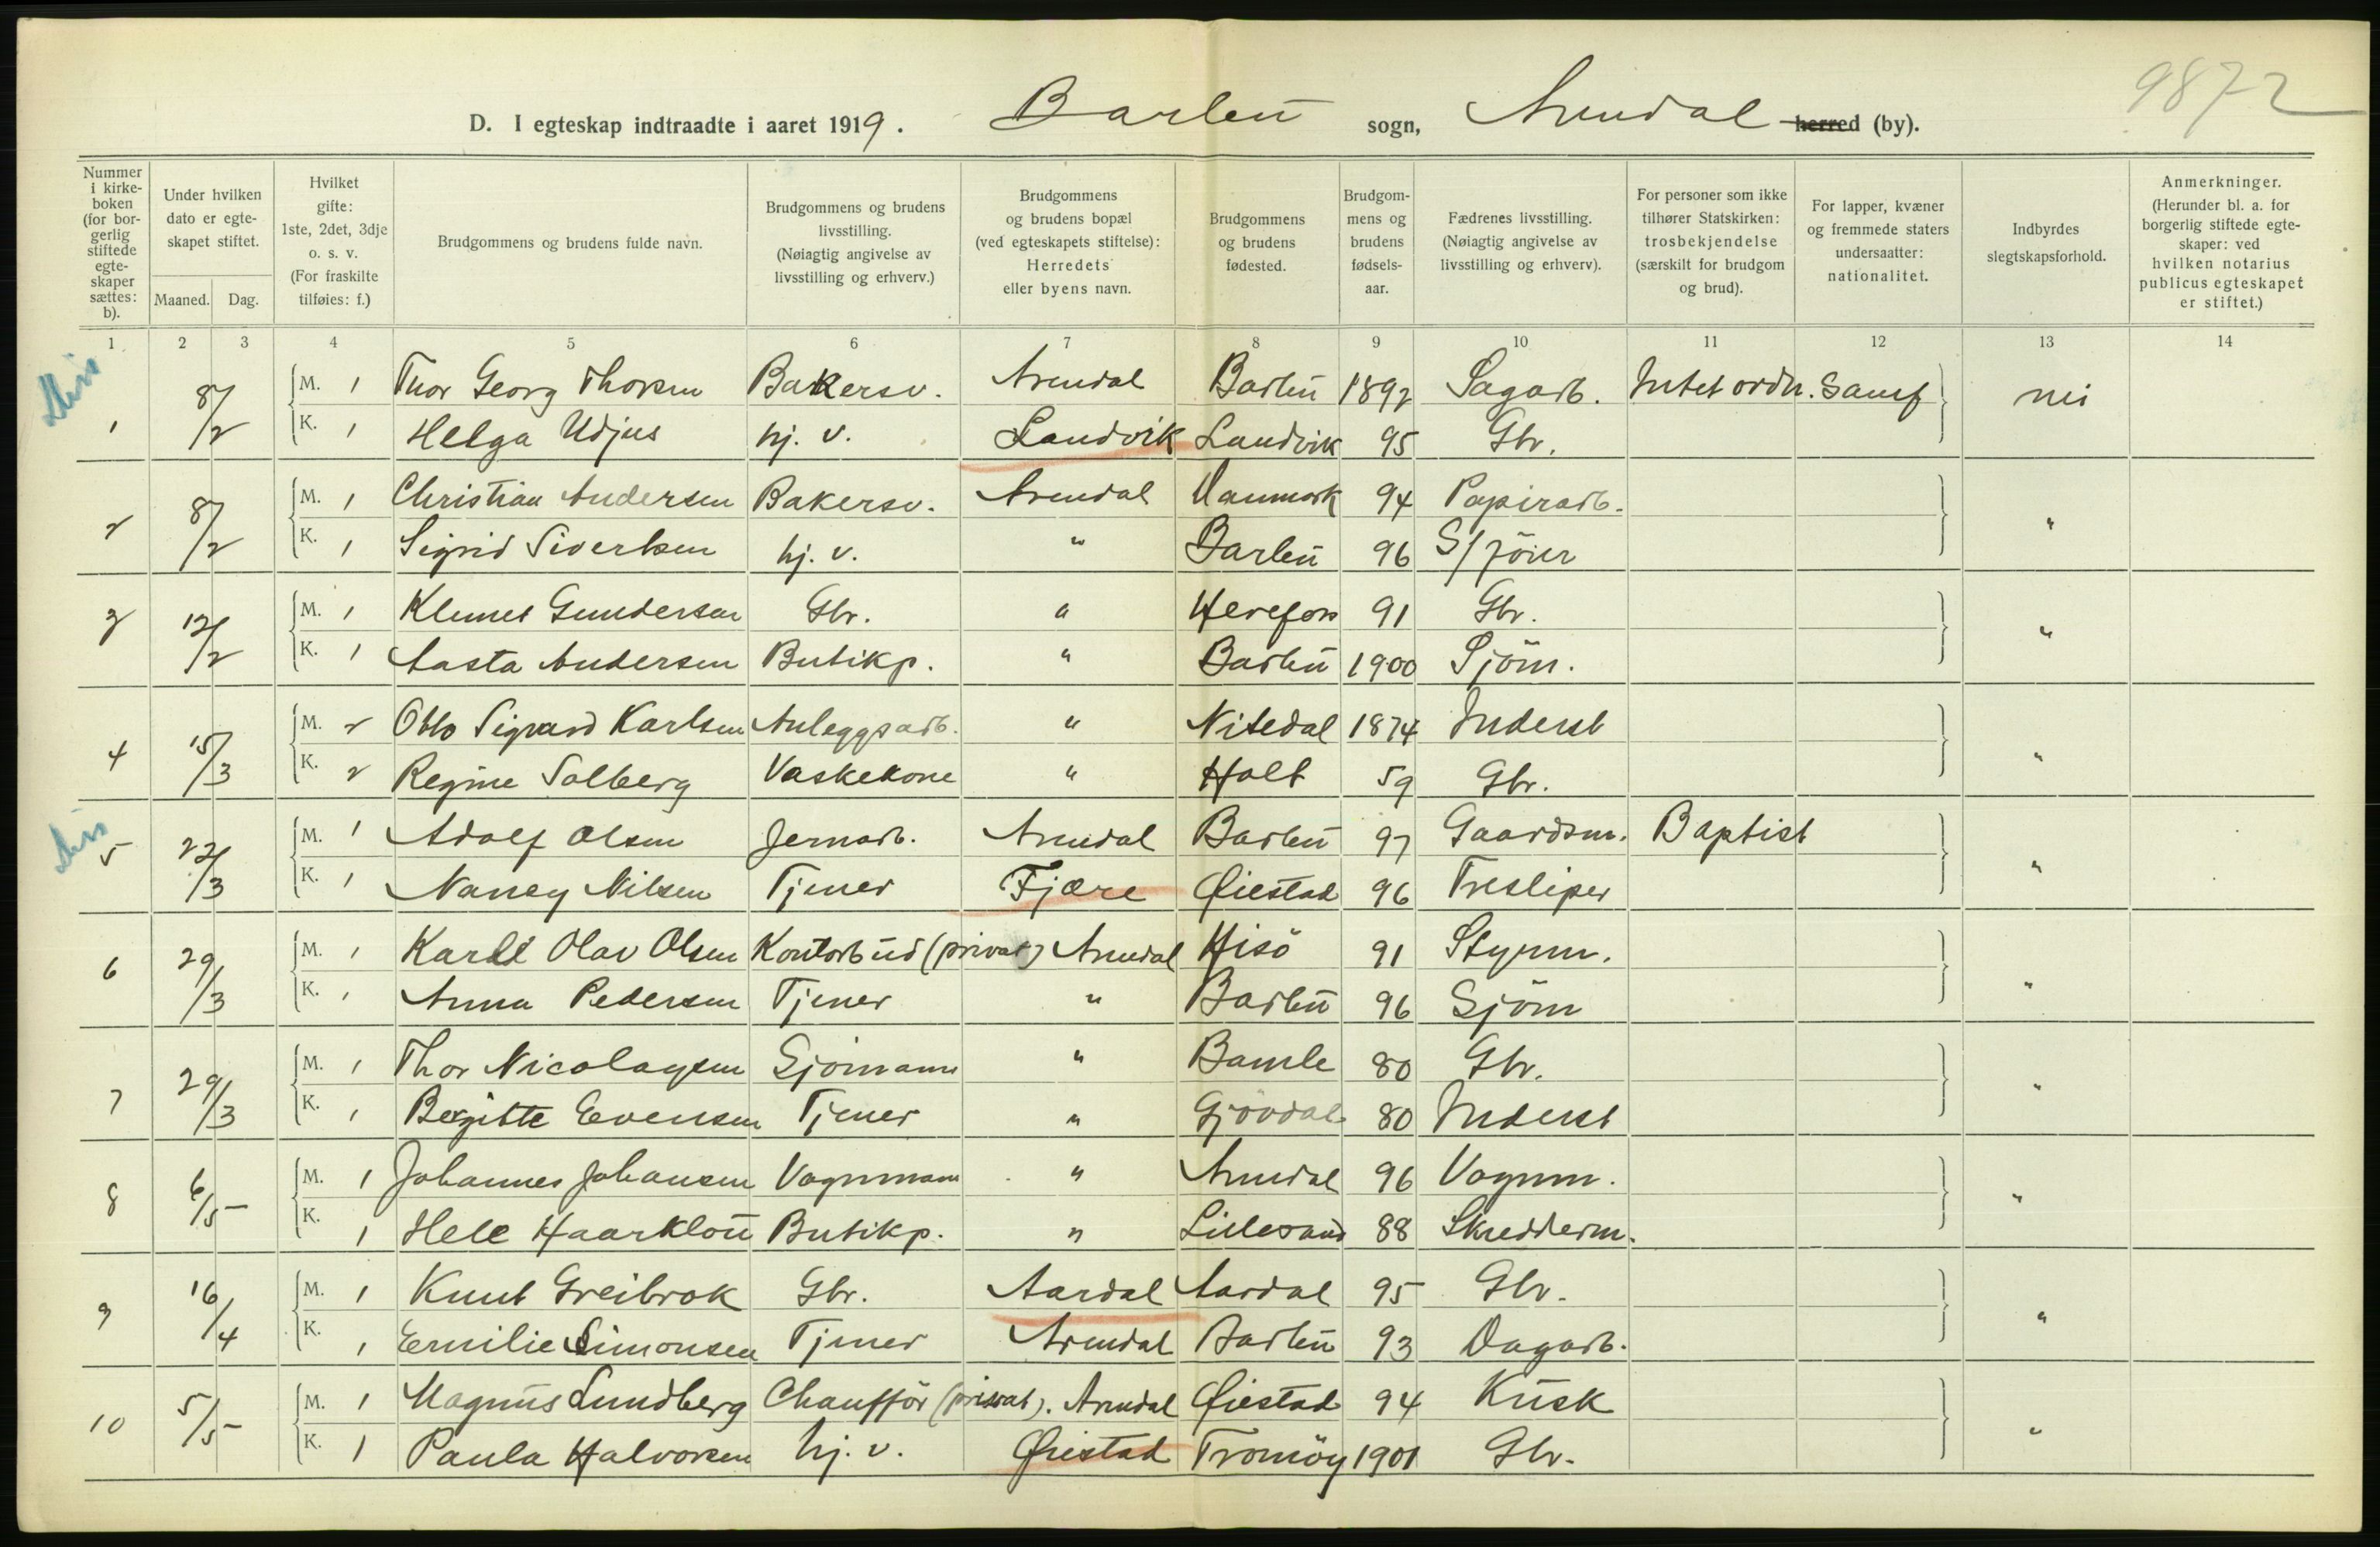 9872
D. I egteskap indtraadte i aaret 1919. Barbu sogn, Arendal herred (by).
Nummer i kirkeboken (for borgerlig stiftede egteskaper sættes: b).
Under hvilken dato er egteskapet stiftet.
Maaned. Dag.
Hvilket gifte: 1ste, 2det, 3dje o. s. v. (For fraskilte tilføies: f.)
Brudgommens og brudens fulde navn.
Brudgommens og brudens livsstilling. (Nøiagtig angivelse av livsstilling og erhverv.)
Brudgommens og brudens bopæl (ved egteskapets stiftelse): Herredets eller byens navn.
Brudgommens og brudens fødested.
Brudgommens og brudens fødselsaar.
Fædrenes livsstilling. (Nøiagtig angivelse av livsstilling og erhverv).
For personer som ikke tilhører Statskirken: trosbekjendelse (særskilt for brudgom og brud).
For lapper, kvæner og fremmede staters undersaatter: nationalitet.
Indbyrdes slegtskapsforhold.
Anmerkninger. (Herunder bl. a. for borgerlig stiftede egteskaper: ved hvilken notarius publicus egteskapet er stiftet.)
1 2 3 4 5 6 7 8 9 10 11 12 13 14
1 8/2 M. 1 Thor Georg Thorsen Bakersv. Arendal Barbu 1892 Sagarb. Intet ordn. Samf nei
K. 1 Helga Udjus hj. v. Landvik Landvik 95 Gbr.
2 8/2 M. 1 Christian Andersen Bakersv. Arendal Danmark 94 Papirarb. "
K. 1 Sigrid Sivertsen hj. v. " Barbu 96 S/föier
3 12/2 M. 1 Klemet Gundersen Gbr. " Herefos 91 Gbr. "
K. 1 Aasta Andersen Butikp. " Barbu 1900 Sjöm.
4 15/3 M. 2 Otto Sigvard Karlsen Anleggsarb. " Nitedal 1874 Inderst "
K. 2 Regine Solberg Vaskekone " Holt 59 Gbr.
5 22/3 M. 1 Adolf Olsen Jernarb. Arendal Barbu 97 Gaardsm. Baptist "
K. 1 Nancy Nilsen Tjener Fjære Øiestad 96 Tresliper
6 29/3 M. 1 Karl Olav Olsen Kontorbud (privat) Arendal Hisö 91 Styrm. "
K. 1 Anna Pedersen Tjener " Barbu 96 Sjöm
7 29/3 M. 1 Thor Nicolaysen Sjömann " Bamle 80 Gbr. "
K. 1 Birgitte Evensen Tjener " Gjövdal 80 Inderst
8 6/5 M. 1 Johannes Johansen Vognmann " Arendal 96 Vognm. "
K. 1 Hele Haarklou Butikp. " Lillesand 88 Skredderm.
9 16/4 M. 1 Knut Greibrok Gbr. Aardal Aardal 95 Gbr. "
K. 1 Emilie Simonsen Tjener Arendal Barbu 93 Dagarb.
10 5/5 M. 1 Magnus Lundberg Chaufför (privat). Arendal Øiestad 94 Kusk "
K. 1 Paula Halvorsen hj. v. Øiestad Tromöy 1901 Gbr.